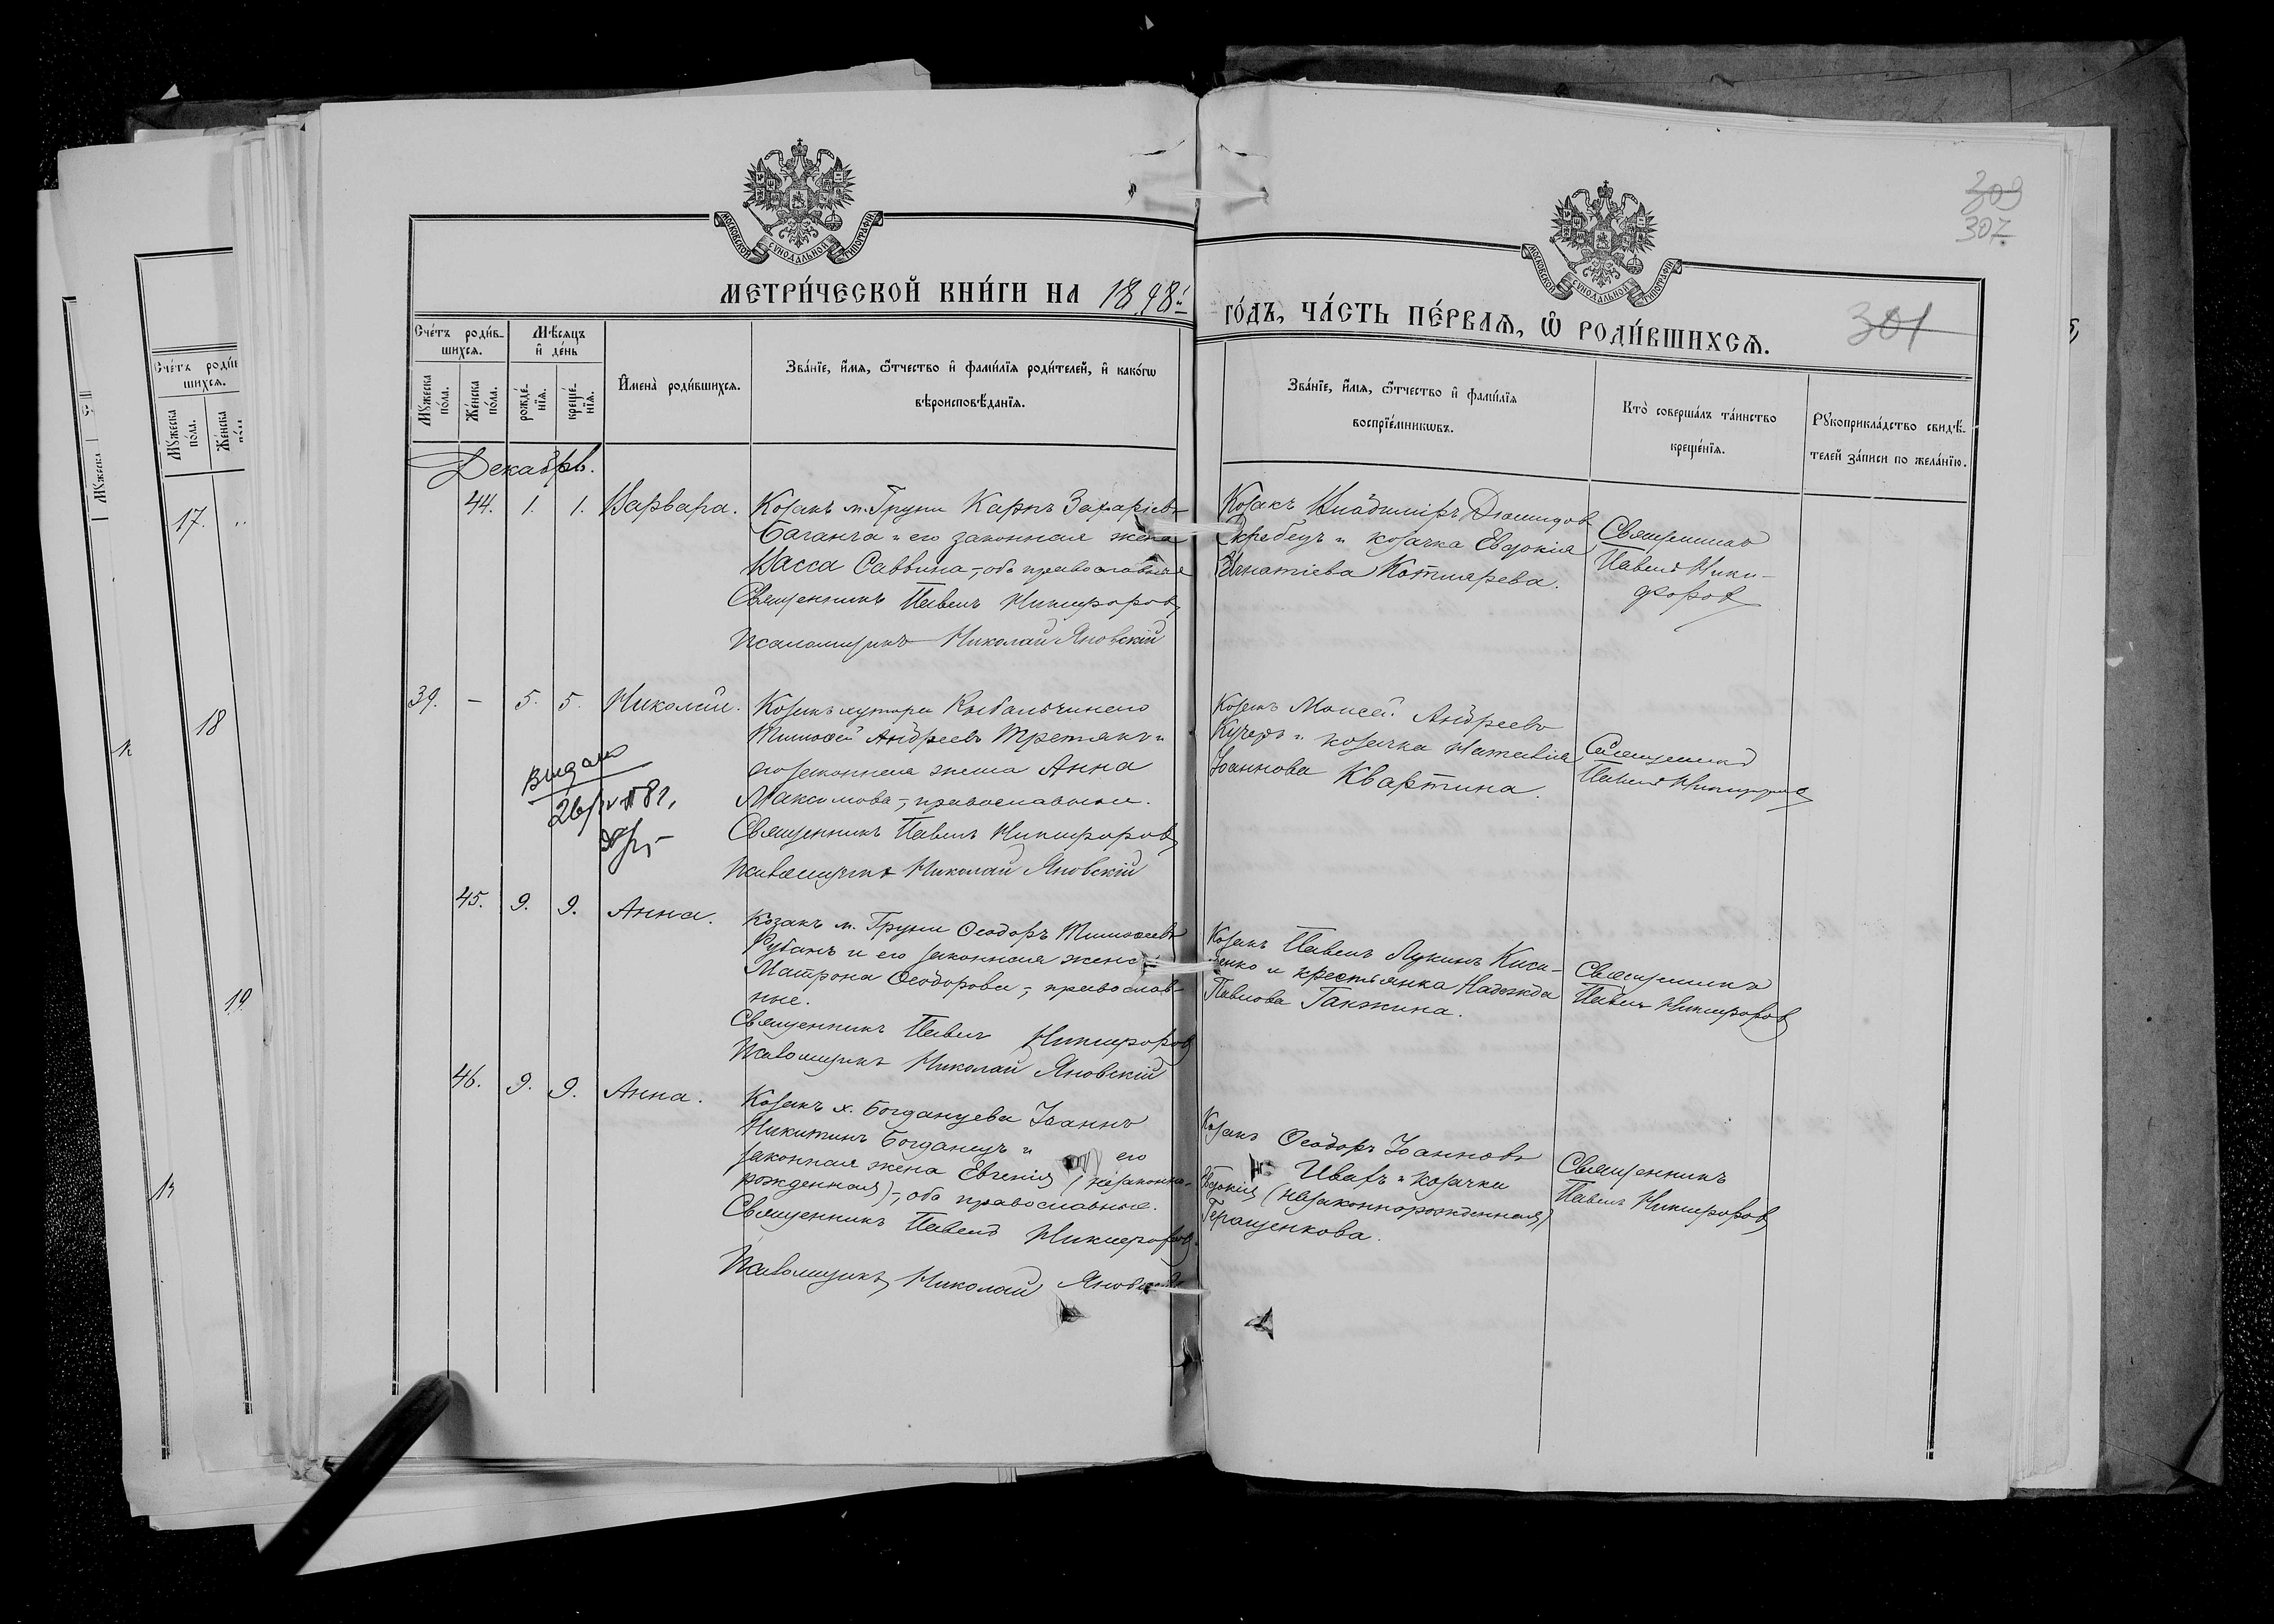 309
307
301
МОСКОВСКОЙ СѴНОДАЛЬНОЙ ТИПОГРАФІИ
МОСКОВСКОЙ СѴНОДАЛЬНОЙ ТИПОГРАФІИ
МЕТРИ́ЧЕСКОЙ КНИ́ГИ НА 1898й
ГО́ДЪ, ЧА́СТЬ ПЕ́РВАѦ, Ѡ҆ РОДИ́ВШИХСѦ.
Сче́тъ роди́в-
шихсѧ.
Мꙋ́жеска по́ла.
Же́нска по́ла.
Мѣ́сѧцъ и҆ де́нь
рожде́-
нїѧ.
креще́-
нїѧ.
И҆мена̀ роди́вшихсѧ.
Зва́нїе, и҆́мѧ, ѻ҆́тчество и҆ фами́лїѧ роди́телей, и҆ како́гѡ
вѣроисповѣ́данїѧ.
Зва́нїе, и҆́мѧ, ѻ҆́тчество и҆ фами́лїѧ
воспрїе́мникѡвъ.
Кто̀ соверша́лъ та́инство
креще́нїѧ.
Рꙋкоприкла́дство свидѣ́-
телей за́писи по жела́нїю.
Декабрь.
44. 1. 1. Варвара.
Козакъ м. Груни Карпъ Захаріевъ
Баганча и его законная жена
Васса Саввина -, оба православные
Священникъ Павелъ Никифоровъ
Псаломщикъ Николай Яновскій
Козакъ Владиміръ Діомидов
Скребецъ и козачка Евдокія
Игнатіева Котлярева.
Священникъ
Павелъ Ники-
форовъ
39. - 5. 5. Николай.
Козакъ хутора Рыбальчинского
Тимоѳей Андреевъ Третякъ и
его законная жена Анна
Максимова -, православные.
Священникъ Павелъ Никифоровъ
Псаломщикъ Николай Яновскій
Козакъ Моисей Андреевъ
Кучеръ и козачка Наталія
Іоаннова Квартина.
Священникъ
Павелъ Никифоровъ
45. 9. 9. Анна.
Козакъ м. Груни Ѳеодоръ Тимоѳеевъ
Рубанъ и его законная жена
Матрона Ѳеодорова -, православ-
ные.
Священникъ Павелъ Никифоровъ
Псаломщикъ Николай Яновскій
Козакъ Павелъ Лукинъ Киси-
ленко и крестьянка Надежда
Павлова Ганжина.
Священникъ
Павелъ Никифоровъ
46. 9. 9. Анна.
Козакъ х. Богданцева Іоаннъ
Никитинъ Богданецъ и его
законная жена Евгенія (незаконно-
рожденная) -, оба православные.
Священникъ Павелъ Никифоровъ
Псаломщикъ Николай Яновскій
Козакъ Ѳеодоръ Іоанновъ
Иваръ и козачка
Евдокія (незаконнорожденная)
Геращенкова.
Священникъ
Павелъ Никифоровъ
Сче́тъ роди́в
шихсѧ.
Мꙋ́жеска по́ла.
Же́нска
17.
18
19.